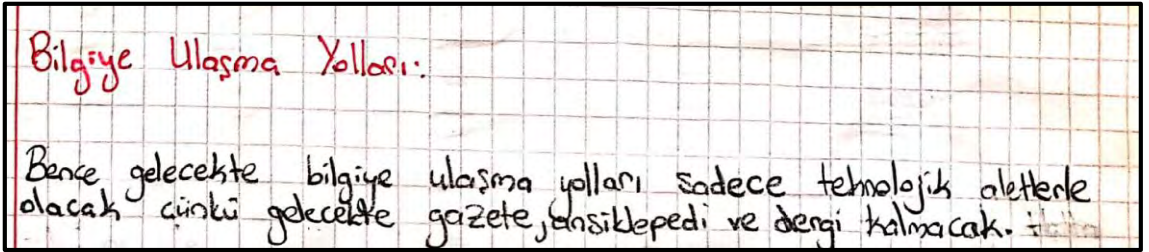 Bilgiye Ulaşma Yolları:
Bence gelecekte bilgiye ulaşma yolları sadece tehnolojik aletlerle
olacak çünkü gelecekte gazete, ansiklepedi ve dergi kalmacak.